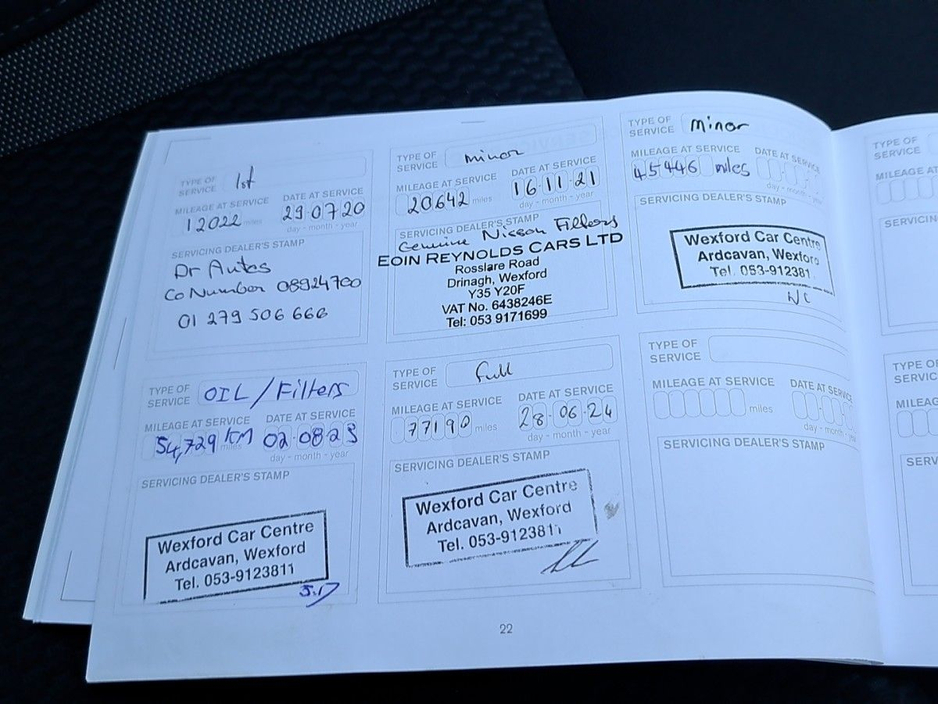 TYPE OF SERVICE 1st
MILEAGE AT SERVICE 12022 miles
DATE AT SERVICE 29.07.20
day - month - year
SERVICING DEALER'S STAMP
Dr Autos
Co Number 08924700
01 279 506 666
TYPE OF SERVICE minor
MILEAGE AT SERVICE 20642 miles
DATE AT SERVICE 16.11.21
day - month - year
SERVICING DEALER'S STAMP
Genuine Nissan Filters
EOIN REYNOLDS CARS LTD
Rosslare Road
Drinagh, Wexford
Y35 Y20F
VAT No. 6438246E
Tel: 053 9171699
TYPE OF SERVICE minor
MILEAGE AT SERVICE 45446 miles
DATE AT SERVICE
day - month - year
SERVICING DEALER'S STAMP
Wexford Car Centre
Ardcavan, Wexford
Tel. 053-912381
TYPE OF SERVICE OIL / Filters
MILEAGE AT SERVICE 54,729 KM miles
DATE AT SERVICE 02.08.23
day - month - year
SERVICING DEALER'S STAMP
Wexford Car Centre
Ardcavan, Wexford
Tel. 053-9123811
TYPE OF SERVICE Full
MILEAGE AT SERVICE 77190 miles
DATE AT SERVICE 28.06.24
day - month - year
SERVICING DEALER'S STAMP
Wexford Car Centre
Ardcavan, Wexford
Tel. 053-9123811
TYPE OF SERVICE
MILEAGE AT SERVICE miles
DATE AT SERVICE
day - month - year
SERVICING DEALER'S STAMP
TYPE OF
SERVICE
MILEAGE
SERVICIN
TYPE OF
SERVICE
MILEAG
SERV
22